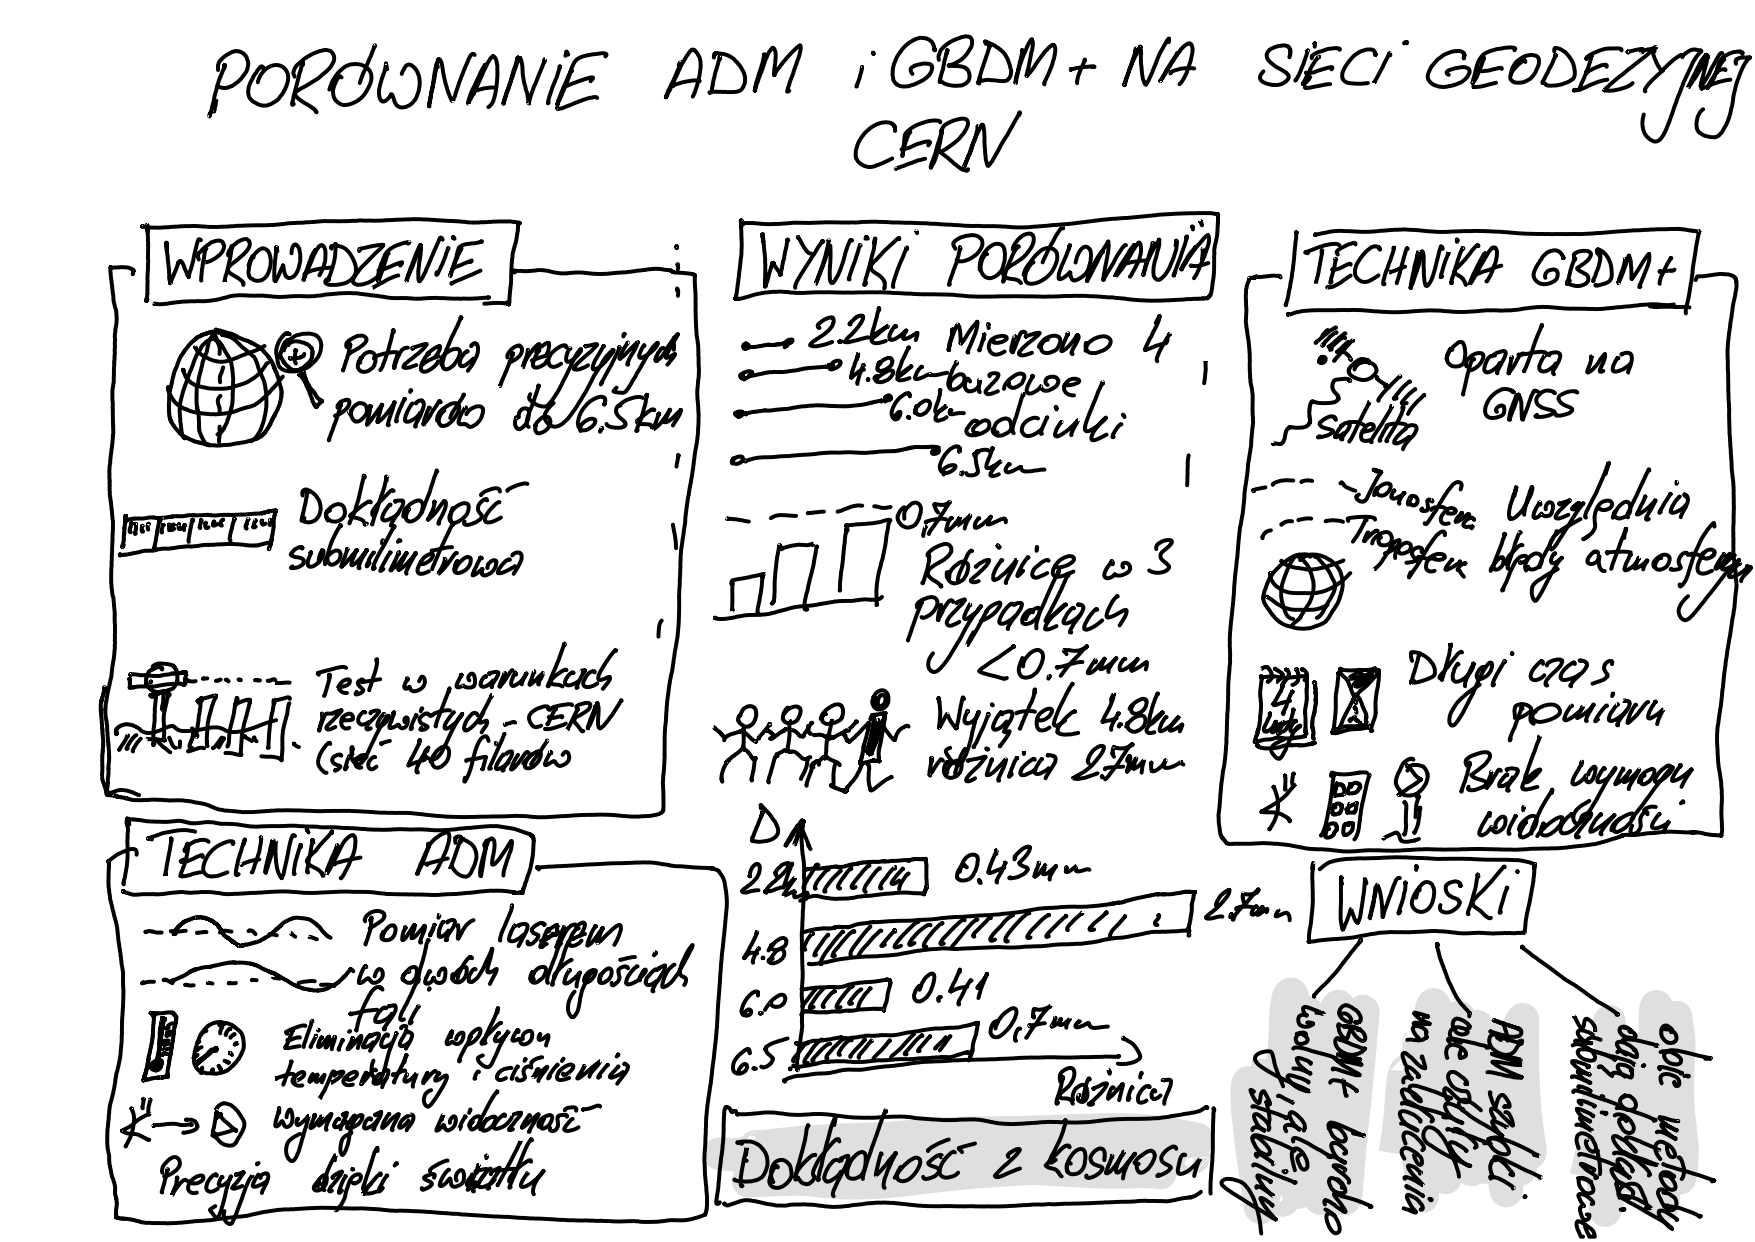 PORÓWNANIE ADM i GBDM+ NA SIECI GEODEZYJNEJ
CERN
WPROWADZENIE
Potrzeba precyzyjnych
pomiarów do 6.5km
Dokładność
submilimetrowa
Test w warunkach
rzeczywistych - CERN
(sieć 40 filarów
TECHNIKA ADM
Pomiar laserem
w dwóch długościach
fali
Eliminacja wpływu
temperatury i ciśnienia
wymagana widoczność
Precyzja dzięki światłu
WYNIKI PORÓWNANIA
2.2km
Mierzono 4
4.8km
bazowe
6.0km
odcinki
6.5km
0,7mm
Różnice w 3
przypadkach
<0.7mm
Wyjątek 4.8km
różnica 2.7mm
D
2.2km
0.43mm
4.8
2.7mm
6.0
0.41
6.5
0,7mm
Różnica
Dokładność z kosmosu
TECHNIKA GBDM+
Oparta na
GNSS
Satelita
Jonosfera
Troposfera
Uwzględnia
błędy atmosfery
4
luty
Długi czas
pomiaru
Brak wymogu
widoczności
WNIOSKI
GBDM+ bardzo
wolny ale
stabilny
ADM szybki
ale czuły
na zakłócenia
obie metody
dają dokładność
submilimetrowe